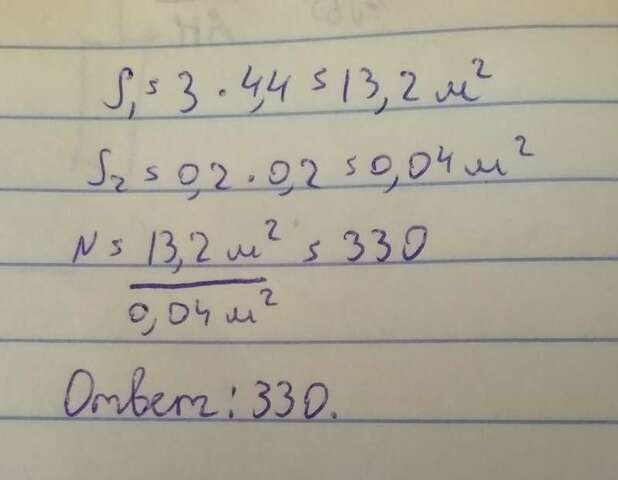 S₁ = 3 · 4,4 = 13,2 м²
S₂ = 0,2 · 0,2 = 0,04 м²
N = 13,2 м² = 330
0,04 м²
Ответ: 330.